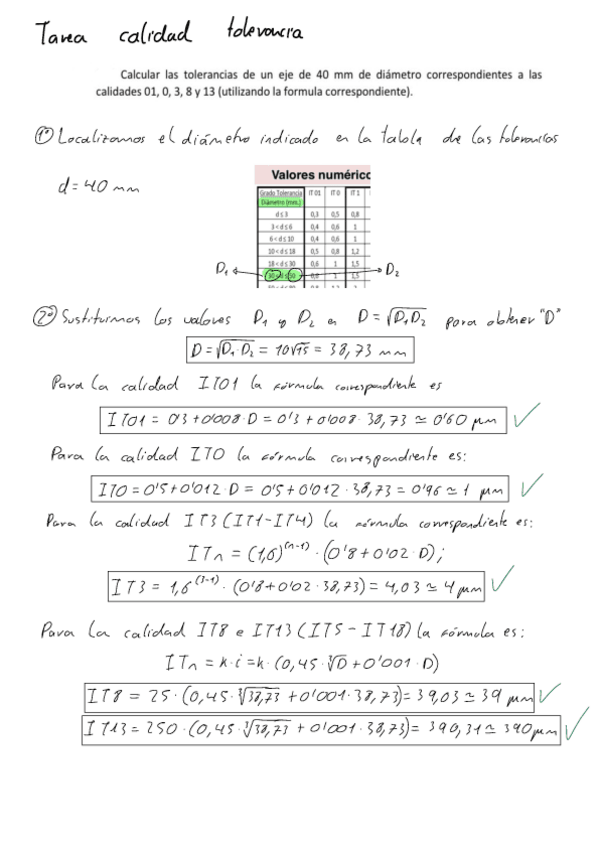 Tarea calidad tolerancia
Calcular las tolerancias de un eje de 40 mm de diámetro correspondientes a las
calidades 01, 0, 3, 8 y 13 (utilizando la formula correspondiente).
1º Localizamos el diámetro indicado en la tabla de las tolerancias
d = 40 mm
Valores numéric
Grado Tolerancia IT 01 IT 0 IT 1
Diámetro (mm.)
d ≤ 3 0,3 0,5 0,8
3 < d ≤ 6 0,4 0,6 1
6 < d ≤ 10 0,4 0,6 1
10 < d ≤ 18 0,5 0,8 1,2
18 < d ≤ 30 0,6 1 1,5
D₁ 30 < d ≤ 50 1 1,5 D₂
2º Sustituimos los valores D₁ y D₂ en D = √D₁D₂ para obtener "D"
D = √D₁·D₂ = 10√15 = 38,73 mm
Para la calidad IT01 la fórmula correspondiente es
IT01 = 0'3 + 0'008·D = 0'3 + 0'008·38,73 ≃ 0'60 μm
Para la calidad IT0 la fórmula correspondiente es:
IT0 = 0'5 + 0'012·D = 0'5 + 0'012·38,73 = 0'96 ≃ 1 μm
Para la calidad IT3 (IT1-IT4) la fórmula correspondiente es:
ITn = (1,6)^(n-1) · (0'8 + 0'02·D);
IT3 = 1,6^(3-1) · (0'8 + 0'02·38,73) = 4,03 ≃ 4 μm
Para la calidad IT8 e IT13 (IT5 - IT18) la fórmula es:
ITn = k·i = k·(0,45·∛D + 0'001·D)
IT8 = 25·(0,45·∛38,73 + 0'001·38,73) = 39,03 ≃ 39 μm
IT13 = 250·(0,45·∛38,73 + 0'001·38,73) = 390,31 ≃ 390 μm